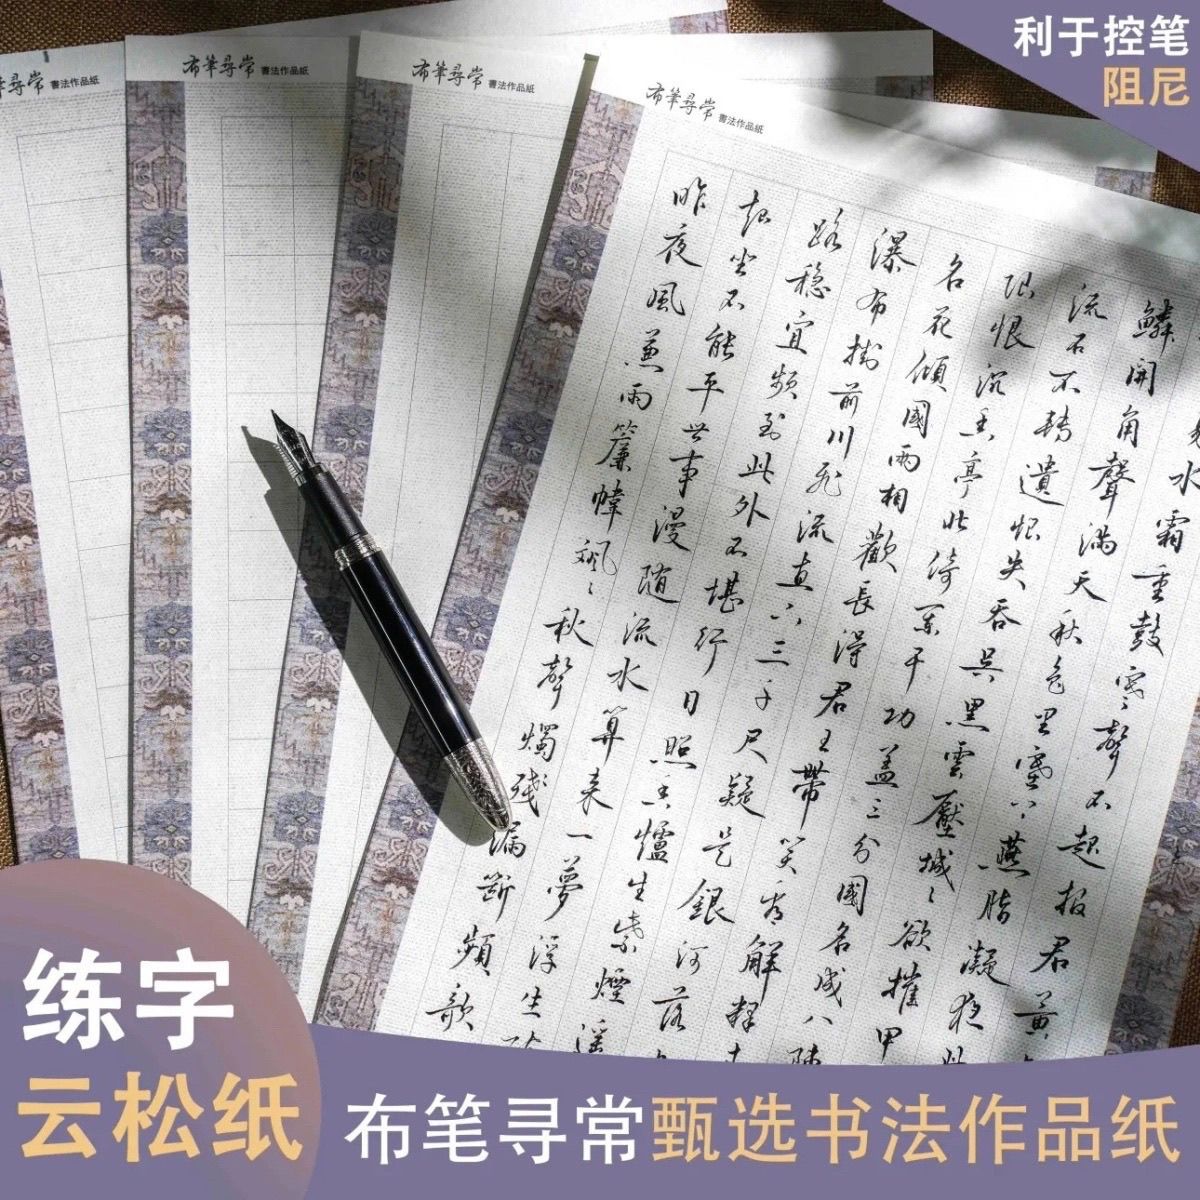 利于控笔
阻尼
布筆尋常 書法作品紙
布筆尋常 書法作品紙
布筆尋常 書法作品紙
布筆尋常 書法作品紙
昨夜風兼雨簾幃颯〻秋聲燭殘漏斷頻欹
起坐不能平世事漫随流水算来一夢浮生
路穩宜頻到此外不堪行日照香爐生紫煙遥
瀑布掛前川飛流直下三千尺疑是銀河落
名花傾國兩相歡長得君王帶笑看解釋
限恨沉香亭北倚闌干功蓋三分國名成八陣
流石不轉遺恨失吞吳黑雲壓城〻欲摧甲
鱗開角聲滿天秋色里塞上燕脂凝夜
水霜重鼓寒〻聲不起报君黄
练字
云松纸
布笔寻常甄选书法作品纸